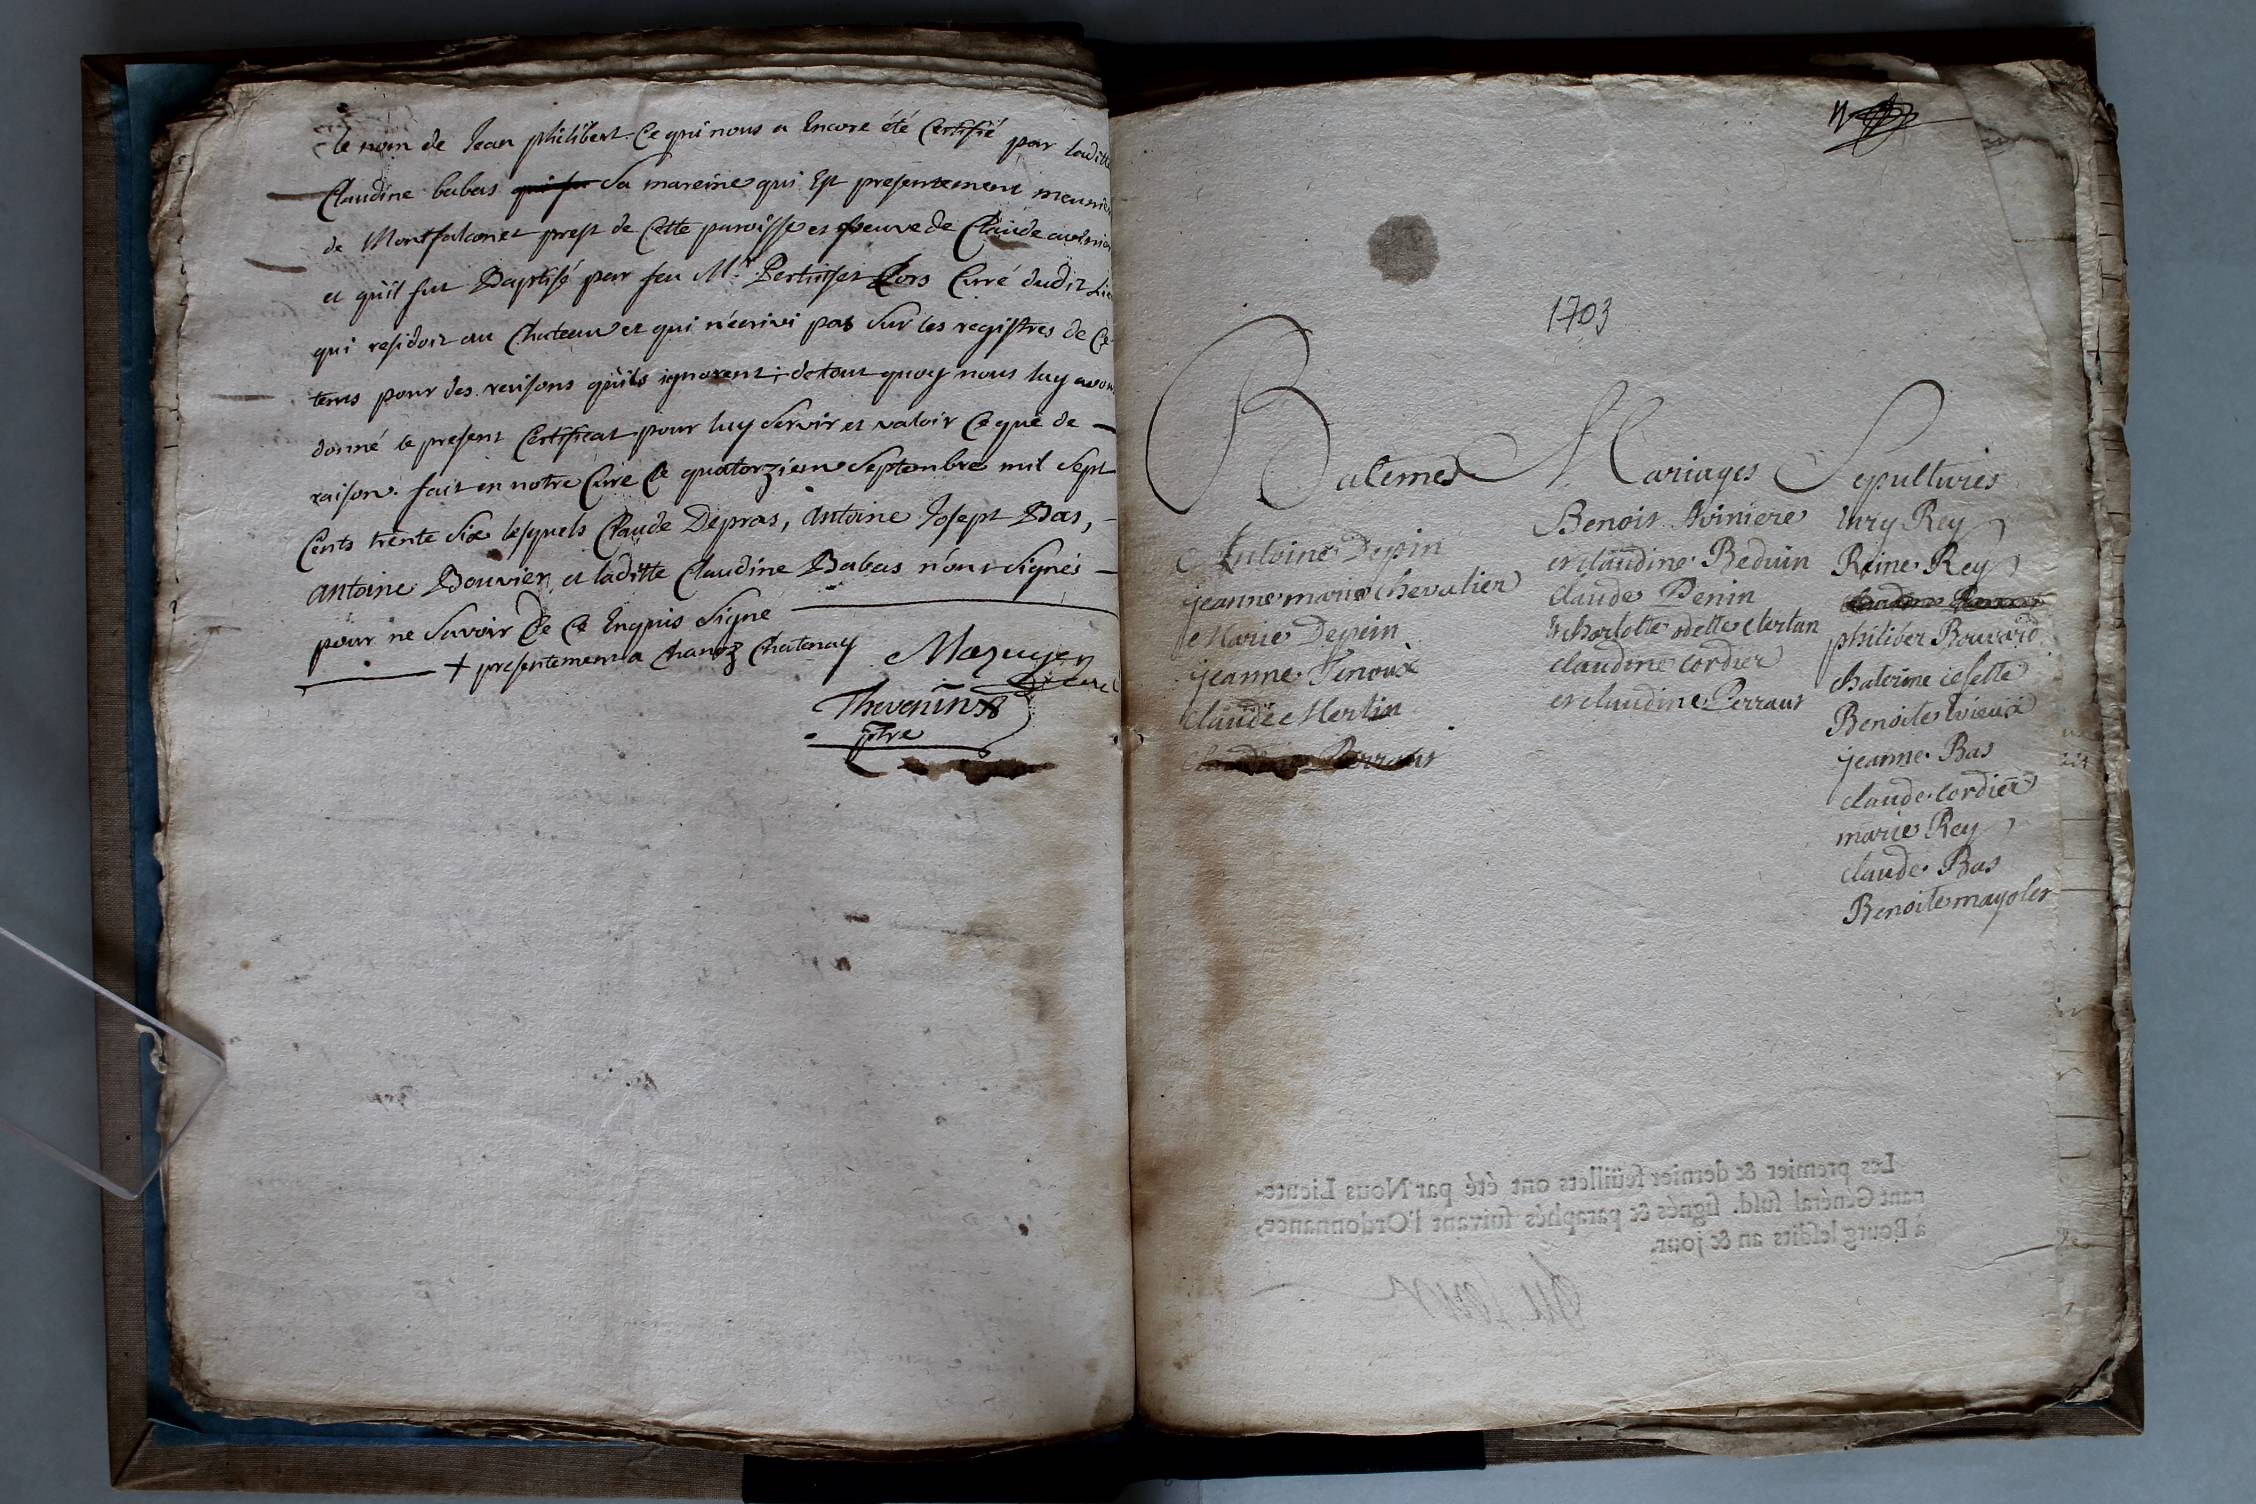 le nom de Jean philibert. Ce qui nous a Encore été Certifié par ladite
Claudine babas sa mareine qui Est presentement
de Montfalconet prest de Cette paroisse et veuve de Claude
et qu'il fut Baptisé par feu Mr. Pertuiset Lors Curé dudit Lie
qui residoit au Chateau et qui n'ecrivi pas sur les registres de Ce
tems pour des raisons qu'ils ignorent; de tout quoy nous luy avon
donné le present Certificat pour luy servir et valoir Ce que de
raison. fait en notre Cure Ce quatorziem Septembre mil sept
Cents trente six lesquels Claude Depras, Antoine Josept Bas,
Antoine Bouvier et laditte Claudine Babas n'ont signés
pour ne savoir De Ce Enquis signé
+ presentement a Chanoz Chatenay
Mazuyer
Curé
Thevenin
ptre
1703
Batemes Mariages Sepultures
Antoine Depin
jeanne marie chevalier
Marie Depein
jeanne Tenoux
Claude Merlin
Claudine Perraut
Benoit Aviniere
et claudine Beduin
claude Penin
et Charlotte odette Mertan
claudine cordier
et claudine Perraut
Rey
Reine Rey
philiber Bouvard
Chaterine
Benoite vieux
jeanne Bas
claude cordier
marie Rey
claude Bas
Benoite mayoler
Les premier & dernier feüillets ont été par Nous Lieute-
nant Général susd. signés & paraphés suivant l'Ordonnance,
à Bourg lesdits an & jour.